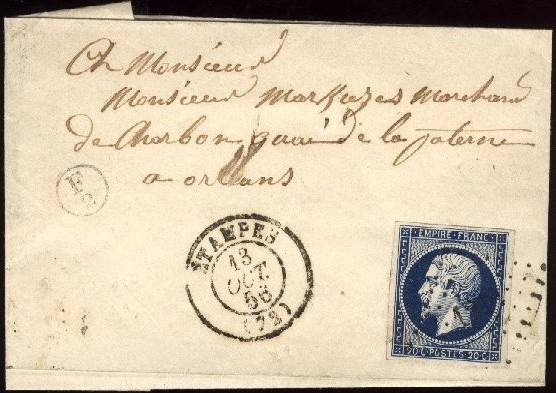 A Monsieur
Monsieur Markuzes Marchand
de Charbon quai de la paterne
a orleans
E
ETAMPES
13
OCT.
56
(72)
EMPIRE FRANC.
20.C.POSTES.20.C.